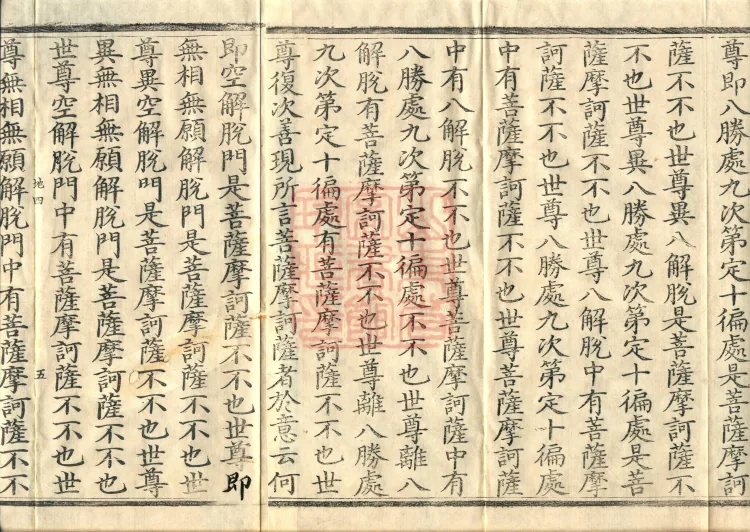 尊即八勝處九次第定十徧處是菩薩摩訶
薩不不也世尊異八解脫是菩薩摩訶薩不
不也世尊異八勝處九次第定十徧處是菩
薩摩訶薩不不也世尊八解脫中有菩薩摩
訶薩不不也世尊八勝處九次第定十徧處
中有菩薩摩訶薩不不也世尊菩薩摩訶薩
中有八解脫不不也世尊菩薩摩訶薩中有
八勝處九次第定十徧處不不也世尊離八
解脫有菩薩摩訶薩不不也世尊離八勝處
九次第定十徧處有菩薩摩訶薩不不也世
尊復次善現所言菩薩摩訶薩者於意云何
即空解脫門是菩薩摩訶薩不不也世尊即
無相無願解脫門是菩薩摩訶薩不不也世
尊異空解脫門是菩薩摩訶薩不不也世尊
異無相無願解脫門是菩薩摩訶薩不不也
世尊空解脫門中有菩薩摩訶薩不不也世
地四 五
尊無相無願解脫門中有菩薩摩訶薩不不